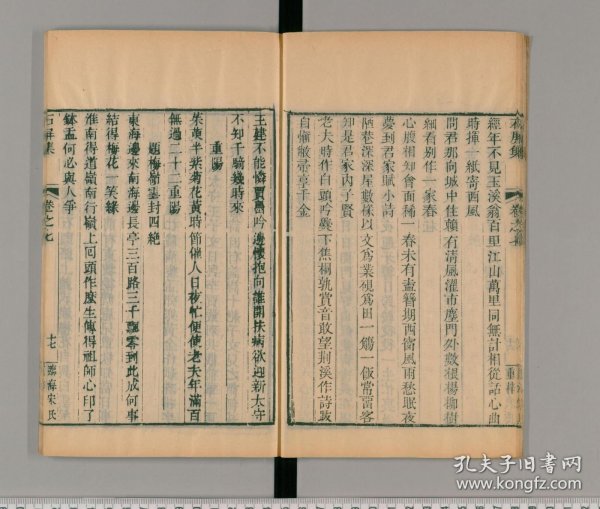 經年不見玉溪翁百里江山萬里同無計相從話心曲
時揮一紙寄西風
問君那向城中住賴有清風濯市塵門外數根楊柳樹
細看別作一家春
心腹相知會面稀一春未有盍簪期西窗風雨愁眠夜
夢到君家賦小詩
陋巷深深屋數椽以文為業硯為田一觴一飯常留客
知是君家內子賢
老夫時作白頭吟爨下焦桐孰賞音敢望荆溪作詩跋
自慚敝帚享千金
石屏集
卷之七
重梓
王建不能憐賈島吟邊懷抱向誰開扶病欲迎新太守
不知千騎幾時來
重陽
茱萸半紫菊花黃時節催人日夜忙便使老夫年滿百
無過二十二重陽
題梅嶺雲封四絶
東海邊來南海邊長亭三百路三千飄零到此成何事
結得梅花一笑緣
淮南得道嶺南行嶺上回頭作麼生傳得祖師心印了
鉢盂何必與人爭
石屏集
卷之七
十七
臨海宋氏
孔夫子旧书网
www.kongfz.com